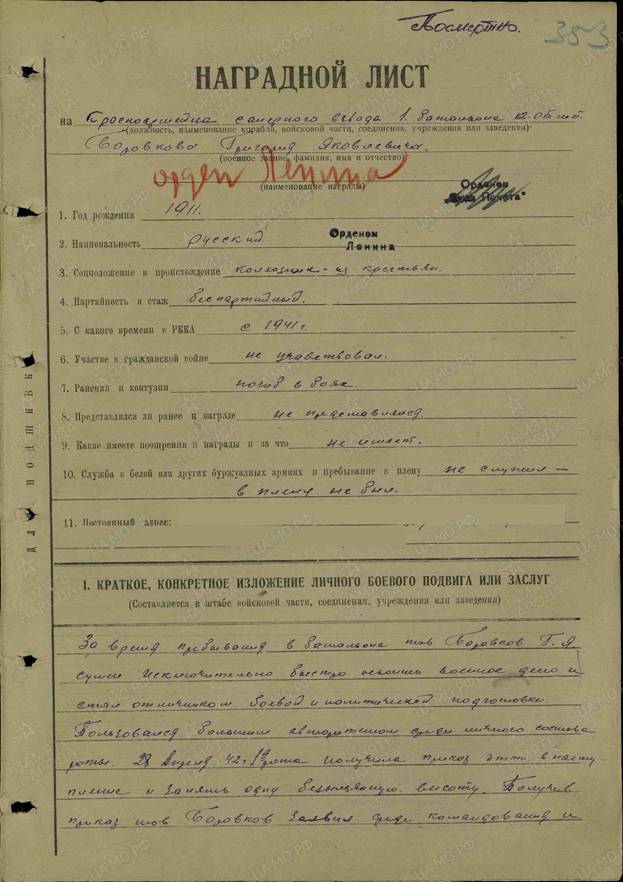 Посмертно.
353
НАГРАДНОЙ ЛИСТ
на Красноармейца саперного взвода 1 батальона 12
(должность, наименование корабля, войсковой части, соединения, учреждения или заведения)
Боровкова Григория Яковлевича.
(военное звание, фамилия, имя и отчество)
орден Ленина
(наименование награды)
Орденом
"Знак Почета"
1. Год рождения 1911.
2. Национальность русский.
Орденом
Ленина
3. Соцположение и происхождение колхозник - из крестьян.
4. Партийность и стаж беспартийный.
5. С какого времени в РККА с 1941 г.
6. Участие в гражданской войне не участвовал.
7. Ранения и контузии погиб в боях.
8. Представлялся ли ранее к награде не представлялся.
9. Какие имеете поощрения и награды и за что не имеет.
10. Служба в белой или других буржуазных армиях и пребывание в плену не служил –
в плену не был.
11. Постоянный адрес:
для подшивки
I. КРАТКОЕ, КОНКРЕТНОЕ ИЗЛОЖЕНИЕ ЛИЧНОГО БОЕВОГО ПОДВИГА ИЛИ ЗАСЛУГ
(Составляется в штабе войсковой части, соединения, учреждения или заведения)
За время пребывания в батальоне тов Боровков Г.Я
сумел исключительно быстро освоить военное дело и
стал отличником боевой и политической подготовки.
Пользовался большим авторитетом среди личного состава
роты. 28 Апреля 42 г. рота получила приказ итти в насту
пление и занять одну безымянную высоту. Получив
приказ тов Боровков заявил среди командования и
ЦАМО.РФ